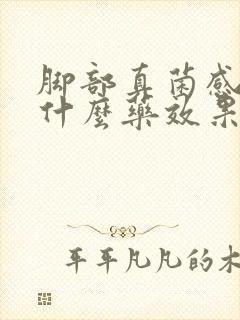 脚部真菌感
什麼藥效果
平平凡凡的木